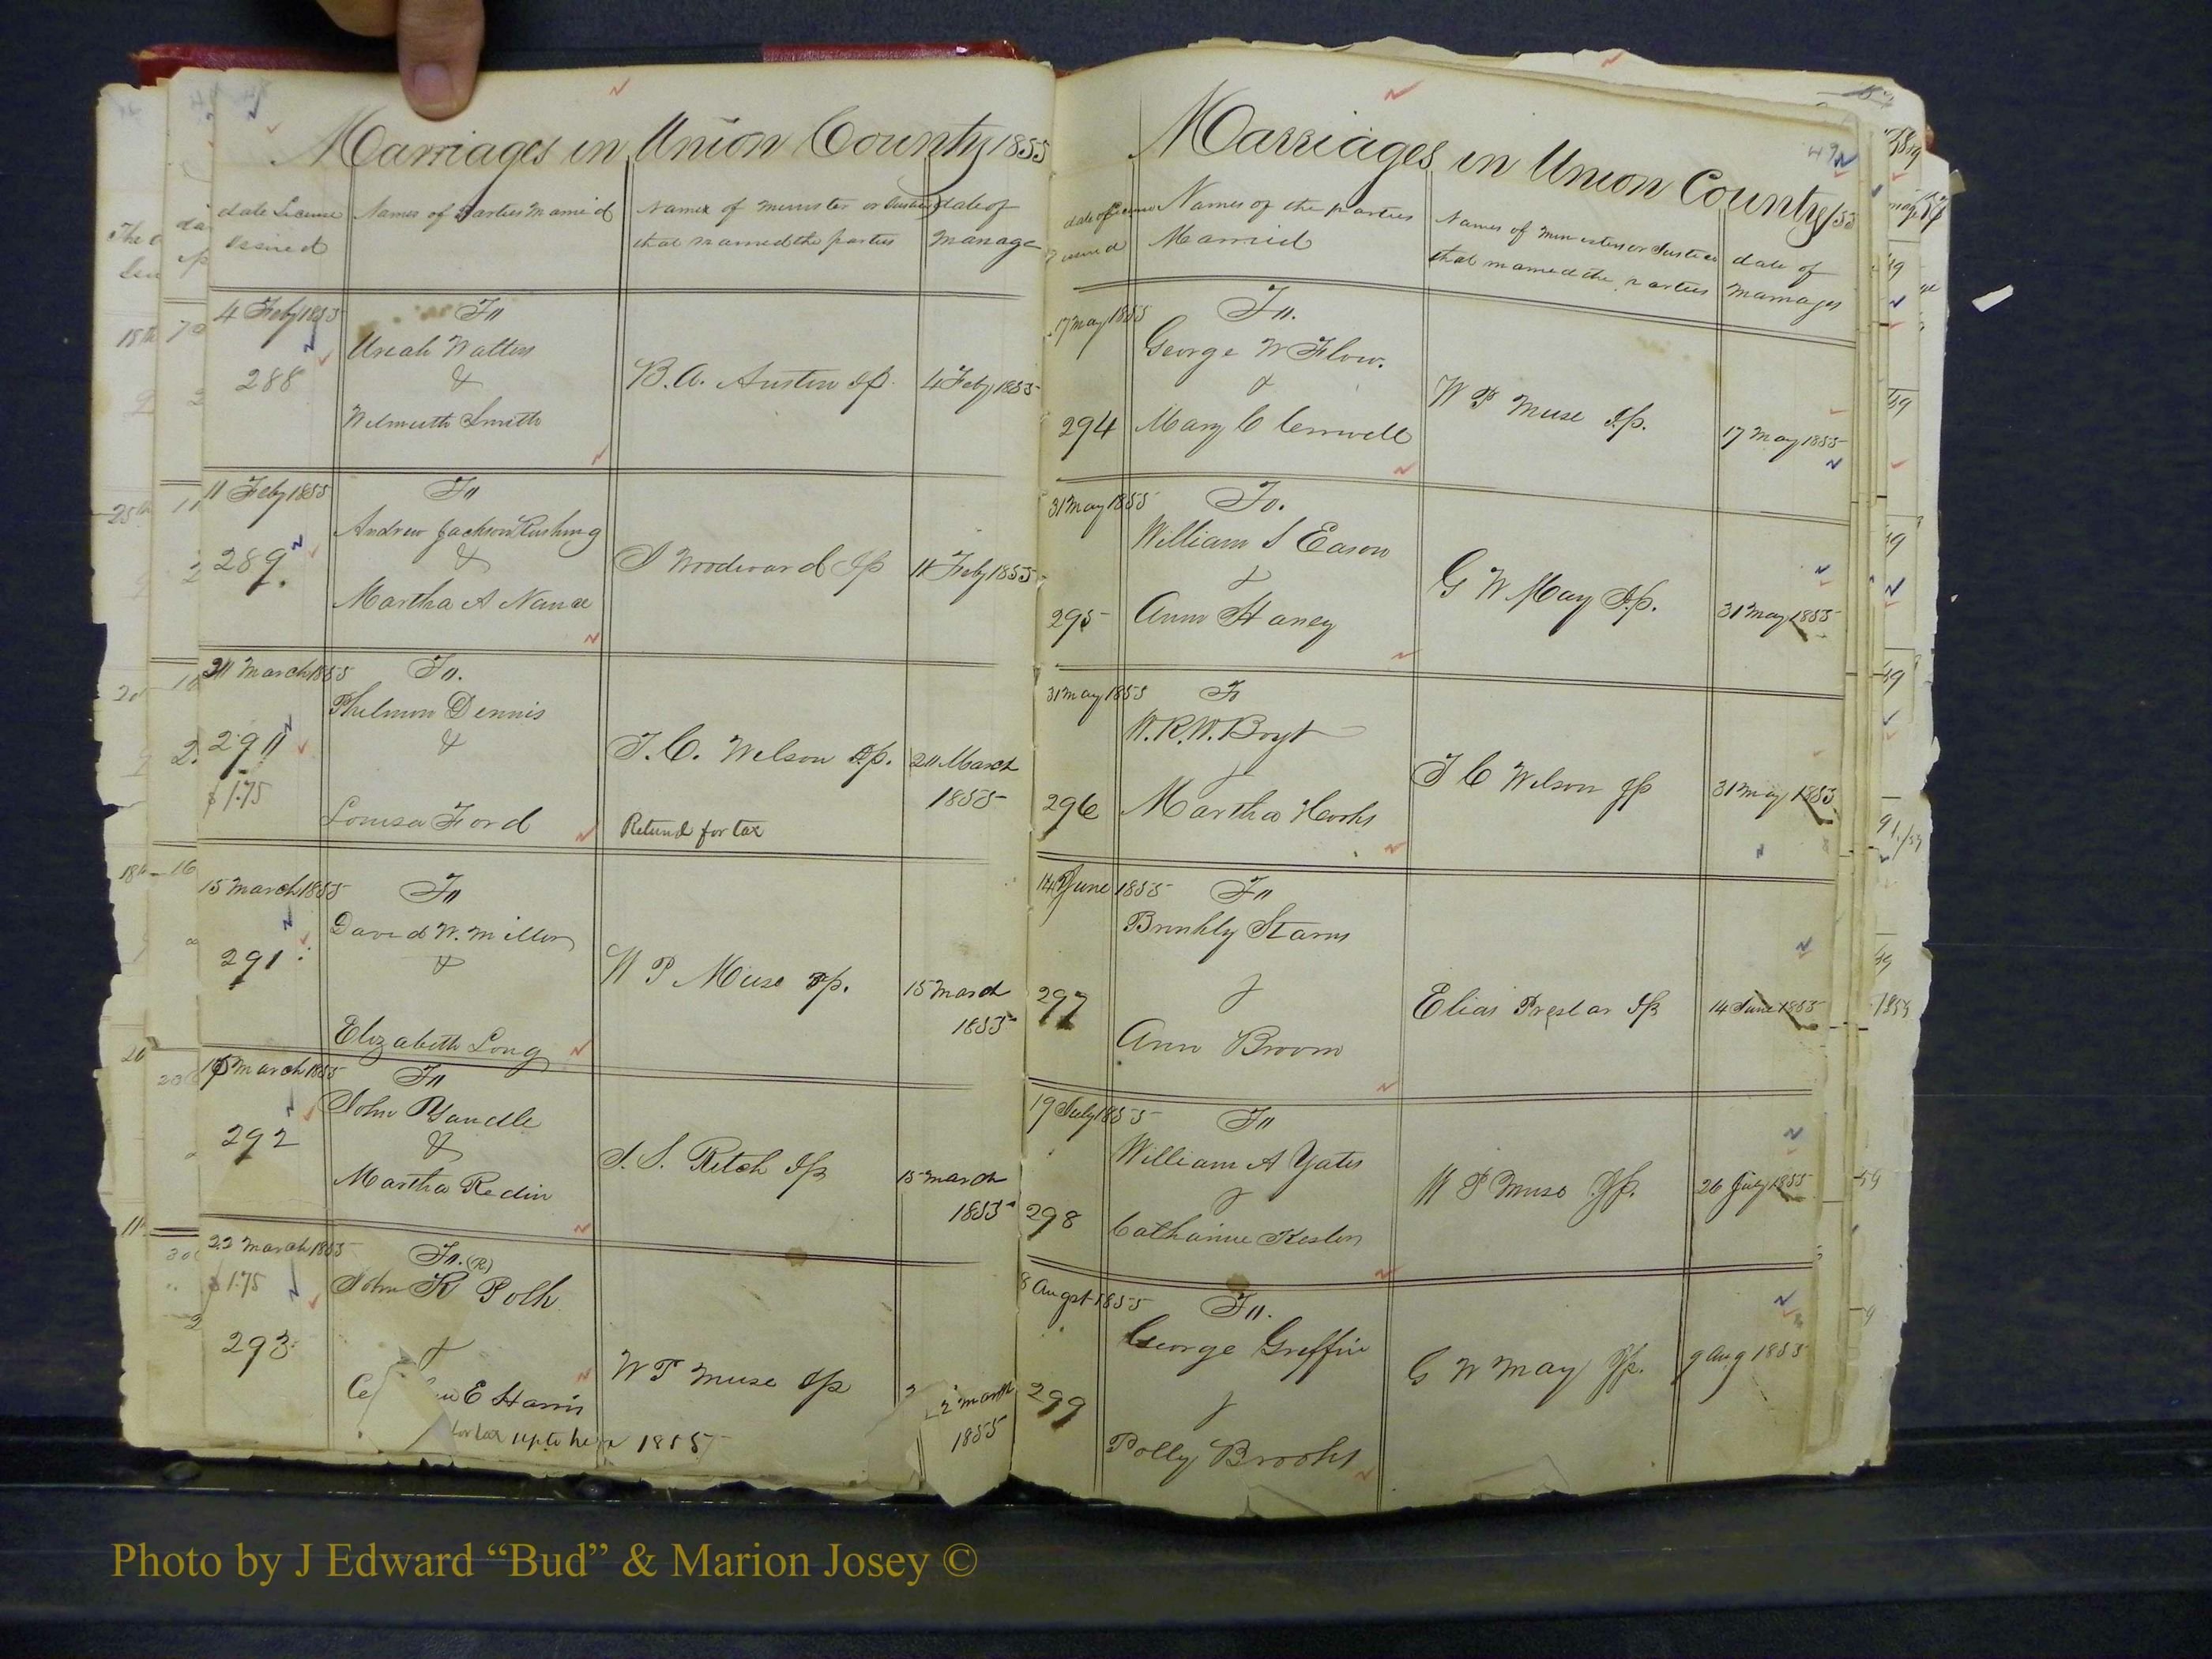 Marriages in Union County 1855
date License Issued
Names of Parties Married
Names of minister or Justice that married the parties
date of marriage
4 Feby 1855
288
To
Uriah Walters
&
Wilmuth Smith
B. A. Austin Jp.
4 Feby 1855
11 Feby 1855
289.
To
Andrew Jackson Rushing
&
Martha A Nance
S Woodward Jp
11 Feby 1855
March 1855
$1.75
To.
Philmon Dennis
&
Louisa Ford
T. C. Wilson Jp.
Retund for tax
March
1855
15 March 1855
291
To
David W. Miller
&
Elizabeth Long
W P Muse Jp.
15 March
1855
March 1855
292
To
John Yandle
&
Martha Redin
S. S. Ritch Jp
15 March
1855
22 March 1855
$1.75
293
To. (R)
John R Polk
&
E Harris
for tax up to here 1855
W P Muse Jp
March
1855
Marriages in Union County 1855
49
date of License Issued
Names of the parties Married
Names of ministers or Justice that married the parties
date of Marriages
17 May 1855
294
To.
George W Flow.
&
Mary C
W P Muse Jp.
17 May 1855
31 May 1855
295
To.
William S Eason
&
Ann Haney
G W May Jp.
31 May 1855
31 May 1855
296
To
W. R. W. Boyt
&
Martha Hooks
T C Wilson Jp
31 May 1855
14 June 1855
297
To
Brinkly Starns
&
Ann Broom
Elias Preslar Jp
14 June 1855
19 July 1855
298
To
William A Yates
&
Catharine
W P Muse Jp.
26 July 1855
8 Augst 1855
299
To.
George Griffin
&
Polly Brooks
G W May Jp.
9 Aug 1855
Photo by J Edward “Bud” & Marion Josey ©